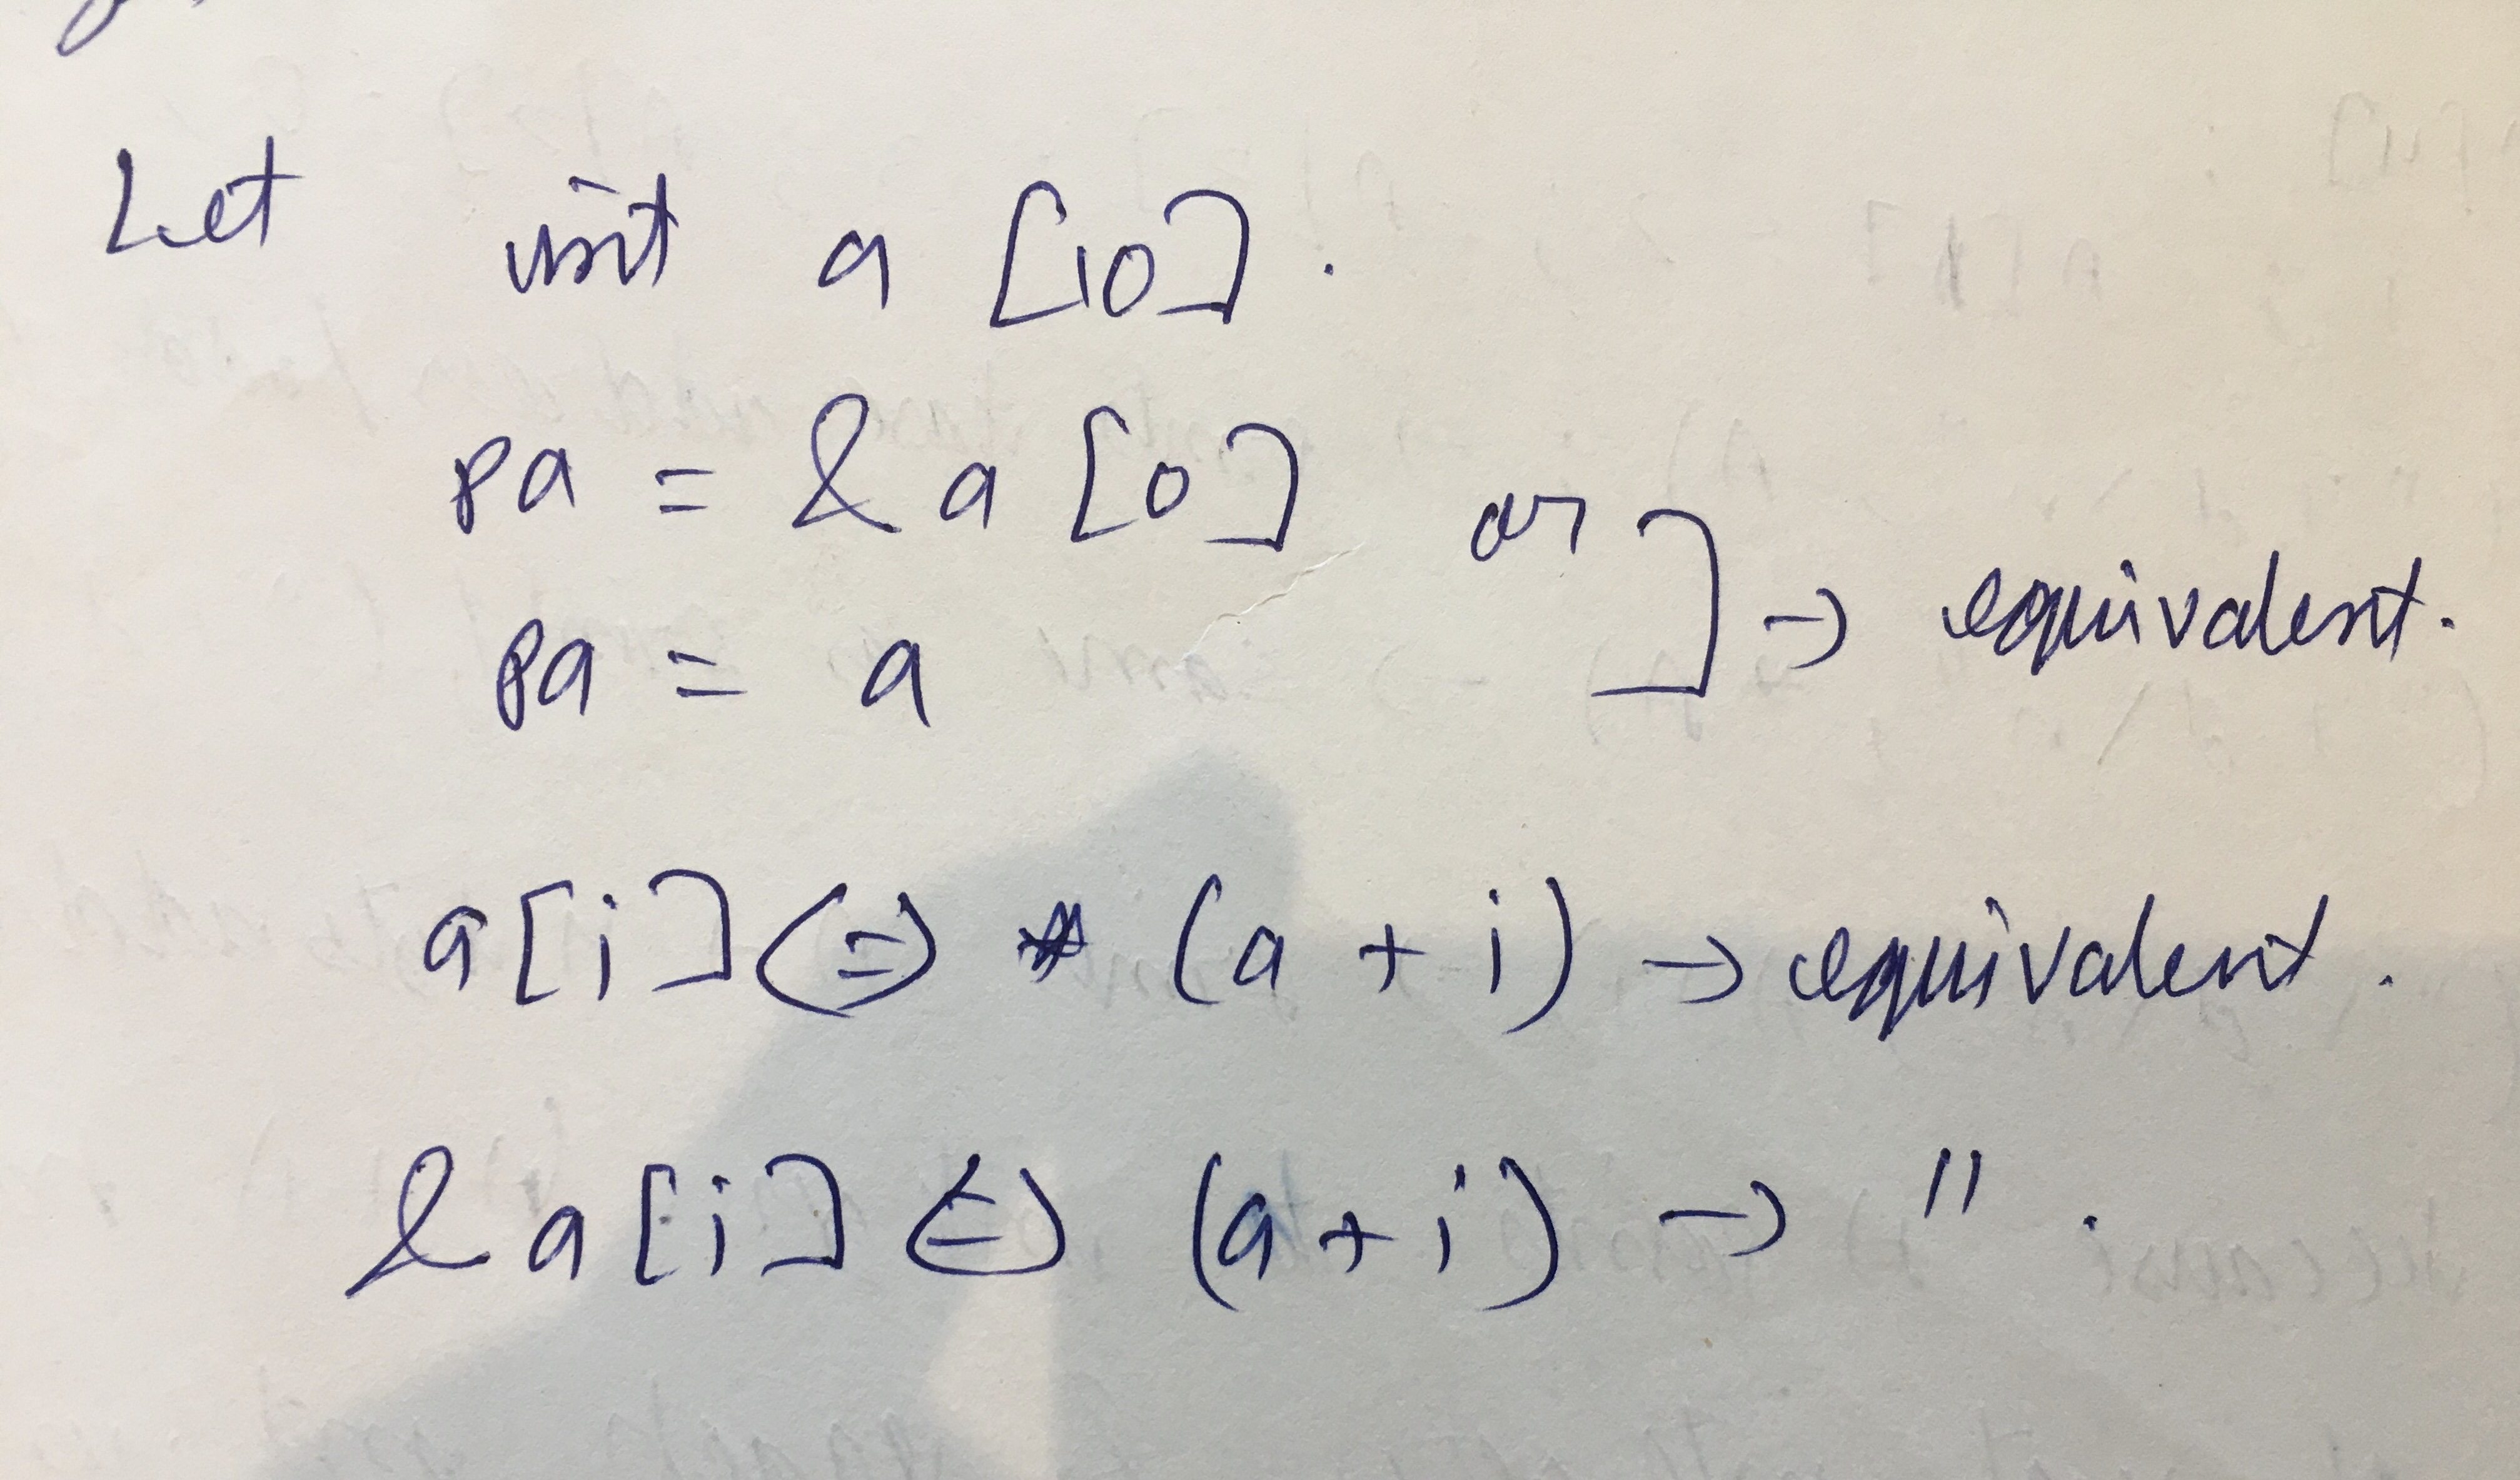 Let int a [10].
pa = & a [0] or
pa = a ] → equivalent.
a[i] <=> * (a + i) → equivalent.
& a[i] <=> (a + i) → " .